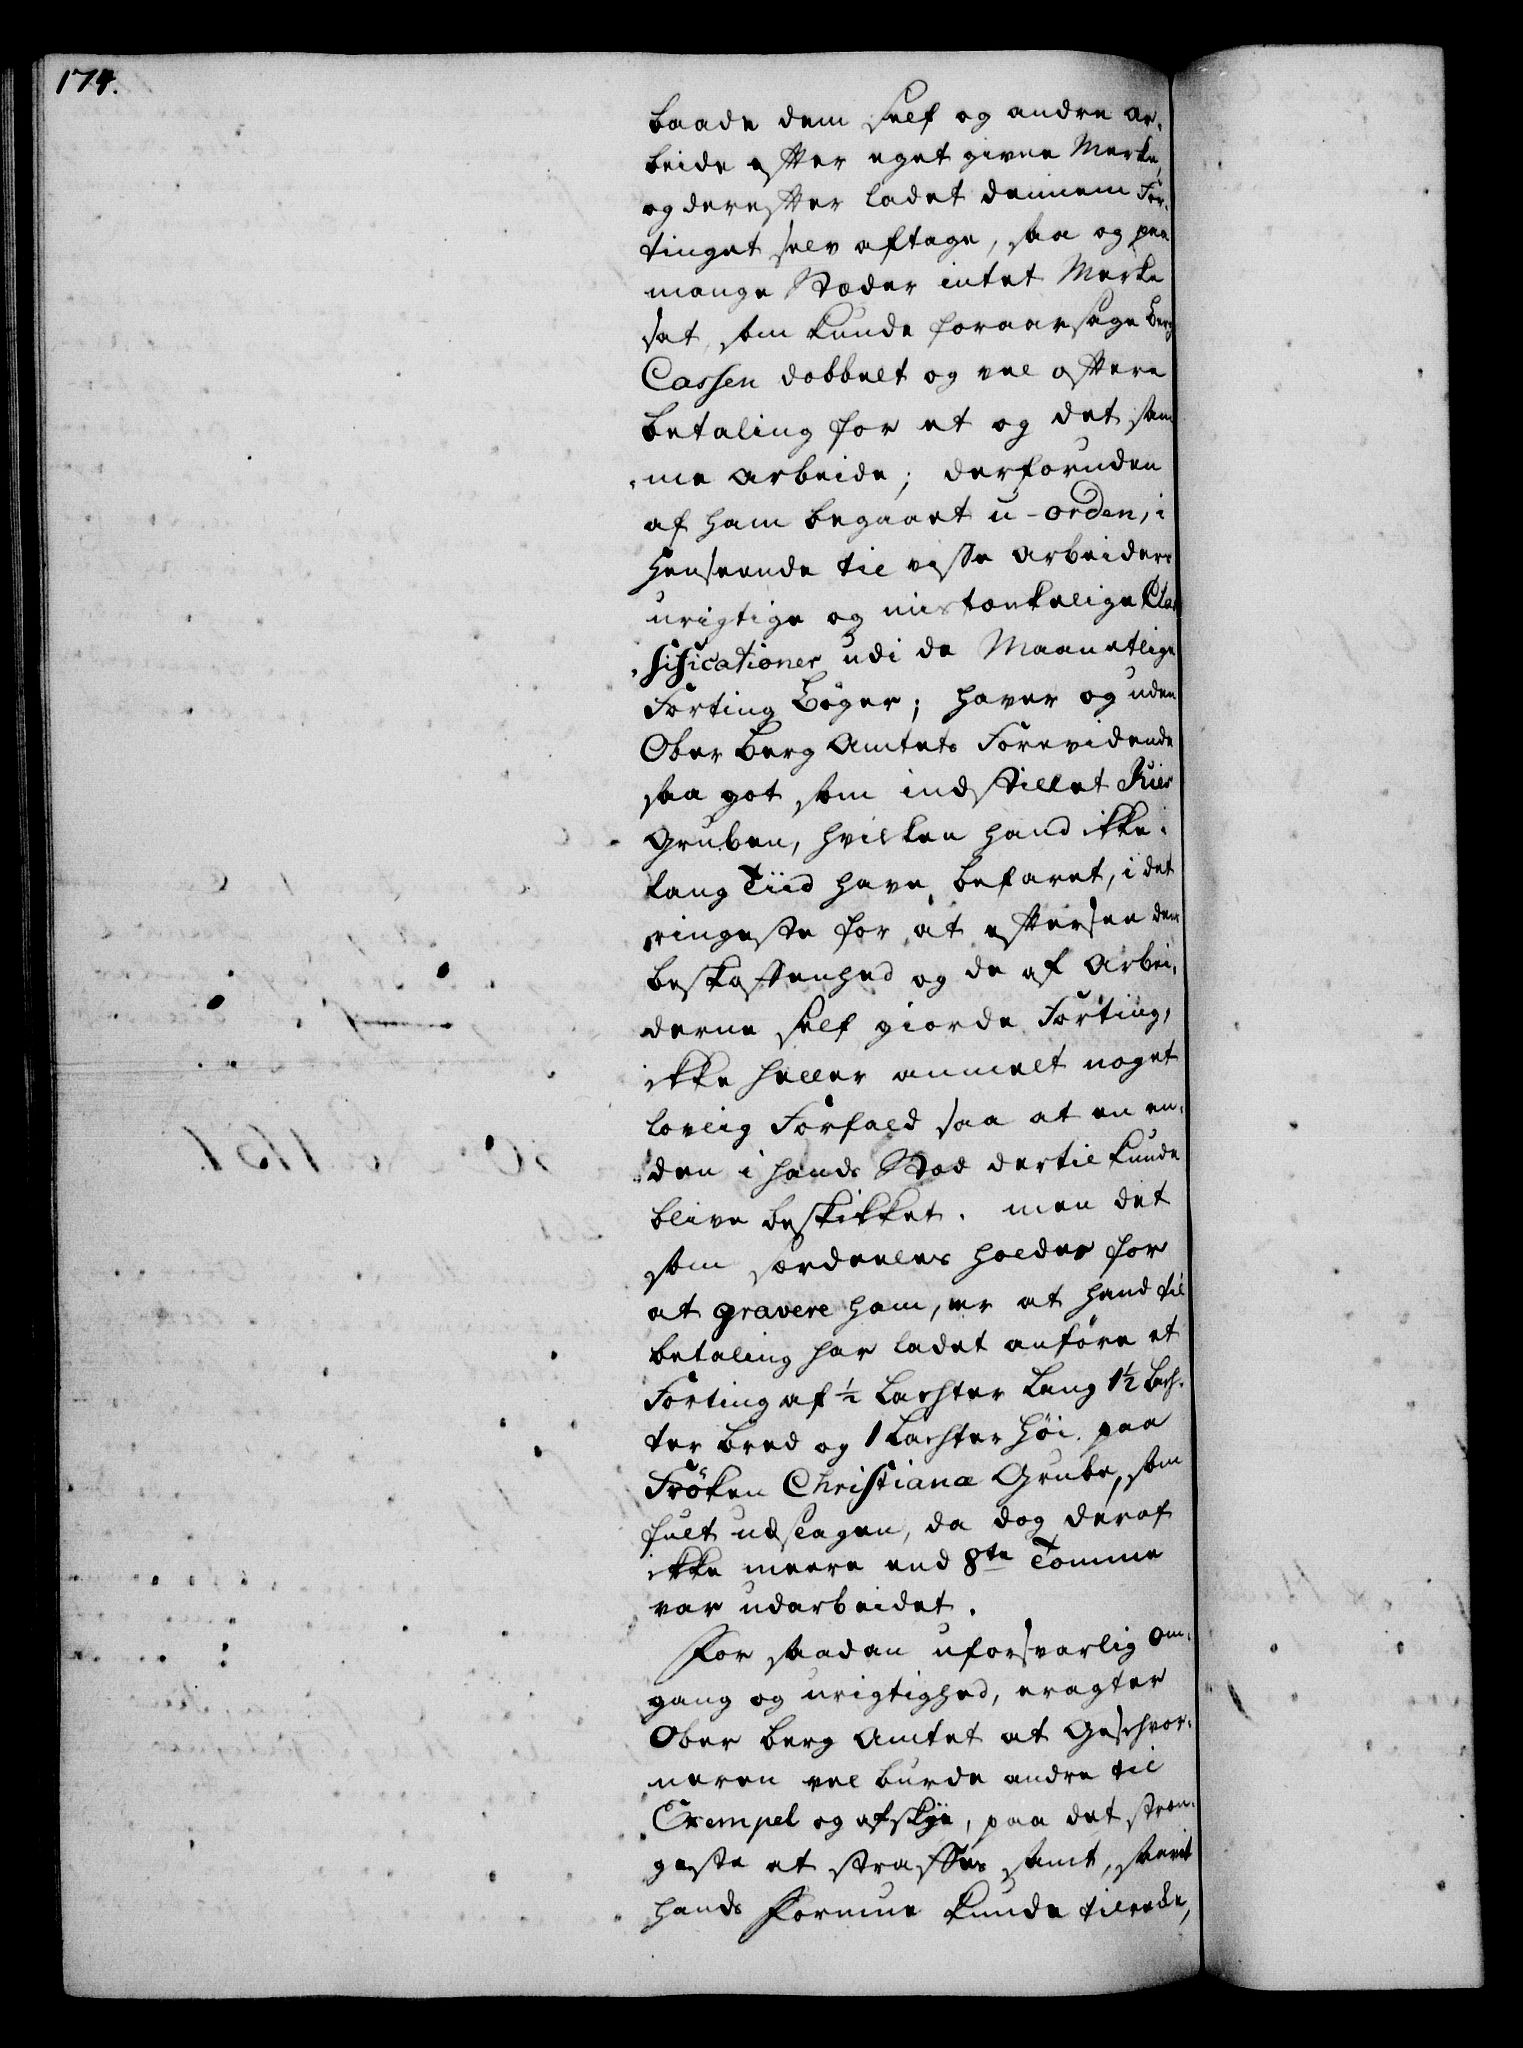 174.
baade dem self og andre ar-
beide efter eget givne Merke,
og derefter ladet dennem For-
tinget selv aftage, saa og paa
mange Stæder intet Merke
sat, som kunde foraarsage Berg
Cassen dobbelt og vel oftere
betaling for et og det sam
-me arbeide; derforuden
af ham begaaet u-orden, i
henseende til visse arbeideres
urigtige og mistænkelige Clas
-sificationer udi de Maanetlige
Forting Böger; haver og uden
Ober Berg Amtets Forevidende
saa got som indstillet Ries
Gruben, hvilken hand ikke i
lang Tiid have befaret, i det
ringeste for at eftersee dens
beskaffenhed og de af Arbei-
derne self giorde Forting,
ikke heller anmelt noget
lovlig Forfald saa at en an-
den i hands Stæd dertil kunde
blive beskikket. men det
som særdeeles holdes for
at gravere ham, er at hand til
betaling har ladet anföre et
Forting af ½ Lachter lang 1½ Lach-
ter bred og 1 Lachter höi paa
Fröken Christianæ Grube, som
fult udslagen, da dog deraf
ikke meere end 8te Tomme
var udarbeidet.
For saadan uforsvarlig om-
gang og urigtighed, eragter
Ober Berg Amtet at Geschvor-
neren vel burde andre til
Exempel og afskye, paa det stræn-
geste at straffes samt, saavit
hands Formue kunde tilrekke,